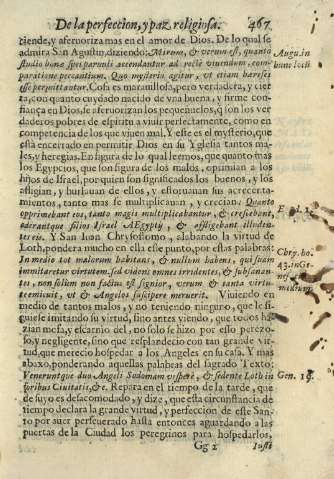 De la perfeccion, y paz religiosa. 467
tiende, y afervoriza mas en el amor de Dios. De lo qual se
admira San Agustin, diziendo: Mirum, & verum est, quanto
studio bonæ spei parvuli accendantur ad rectè vivendum, com-
paratione peccantium. Quo mysterio agitur, ut etiam hæreses
esse permittantur. Cosa es maravillosa, pero verdadera, y cier
ta, con quanto cuydado nacido de vna buena, y firme con-
fiança en Dios, se afervorizan los pequeñuelos, q̃ son los ver
daderos pobres de espiritu a vivir perfectamente, como en
competencia de los que viuen mal. Y este es el mysterio, que
està encerrado en permitir Dios en su Yglesia tantos ma-
les, y heregias. En figura de lo qual leemos, que quanto mas
los Egypcios, que son figura de los malos, oprimian a los
hijos de Israel, por quien son significados los buenos, y los
afligian, y burlauan de ellos, y estoruauan sus acrecenta-
mientos, tanto mas se multiplicauan, y crecian: Quanto
opprimebant eos, tanto magis multiplicabantur, & crescebant,
oderantque filios Israel Ægyptij, & affligebant illuden-
tes eis. Y San Iuan Chrysostomo, alabando la virtud de
Loth, pondera mucho en ella este punto, por estas palabras:
In medio tot malorum habitans, & nullum habens, qui suam
immitaretur virtutem, sed videns omnes irridentes, & subsanan-
tes, non solum non factus est signior, verum & tanta virtu-
te emicuit, ut & Angelos suscipere meruerit. Viuiendo en
medio de tantos malos, y no teniendo ninguno, que le si-
guiesse imitando su virtud, sino antes viendo, que todos ha-
zian mofa, y escarnio del, no solo se hizo por esto perezo-
so, y negligente, sino que resplandecio con tan grande vir-
tud, que merecio hospedar a los Angeles en su casa. Y mas
abaxo, ponderando aquellas palabras del sagrado Texto:
Veneruntque duo Angeli Sodomam vespere, & sedente Loth in
foribus Civitatis, &c. Repara en el tiempo de la tarde, que
de suyo es desacomodado, y dize, que esta circunstancia de
tiempo declara la grande virtud, y perfeccion de este San-
to por auer perseuerado hasta entonces aguardando a las
puertas de la Ciudad los peregrinos para hospedarlos,
Gg 2 Iusti
Augu. in
hunc locũ
Chry. ho.
43. in Ge
Gen. 19.